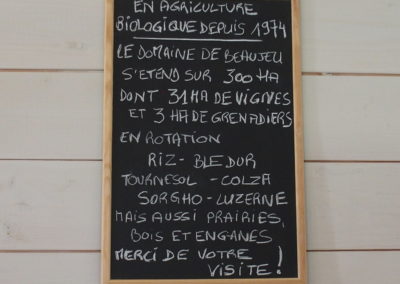 EN AGRICULTURE
BIOLOGIQUE DEPUIS 1974
LE DOMAINE DE BEAUJEU
S'ETEND SUR 300 HA
DONT 31 HA DE VIGNES
ET 3 HA DE GRENADIERS
EN ROTATION
RIZ - BLE DUR
TOURNESOL - COLZA
SORGHO - LUZERNE
MAIS AUSSI PRAIRIES,
BOIS ET ENGANES
MERCI DE VOTRE
VISITE !